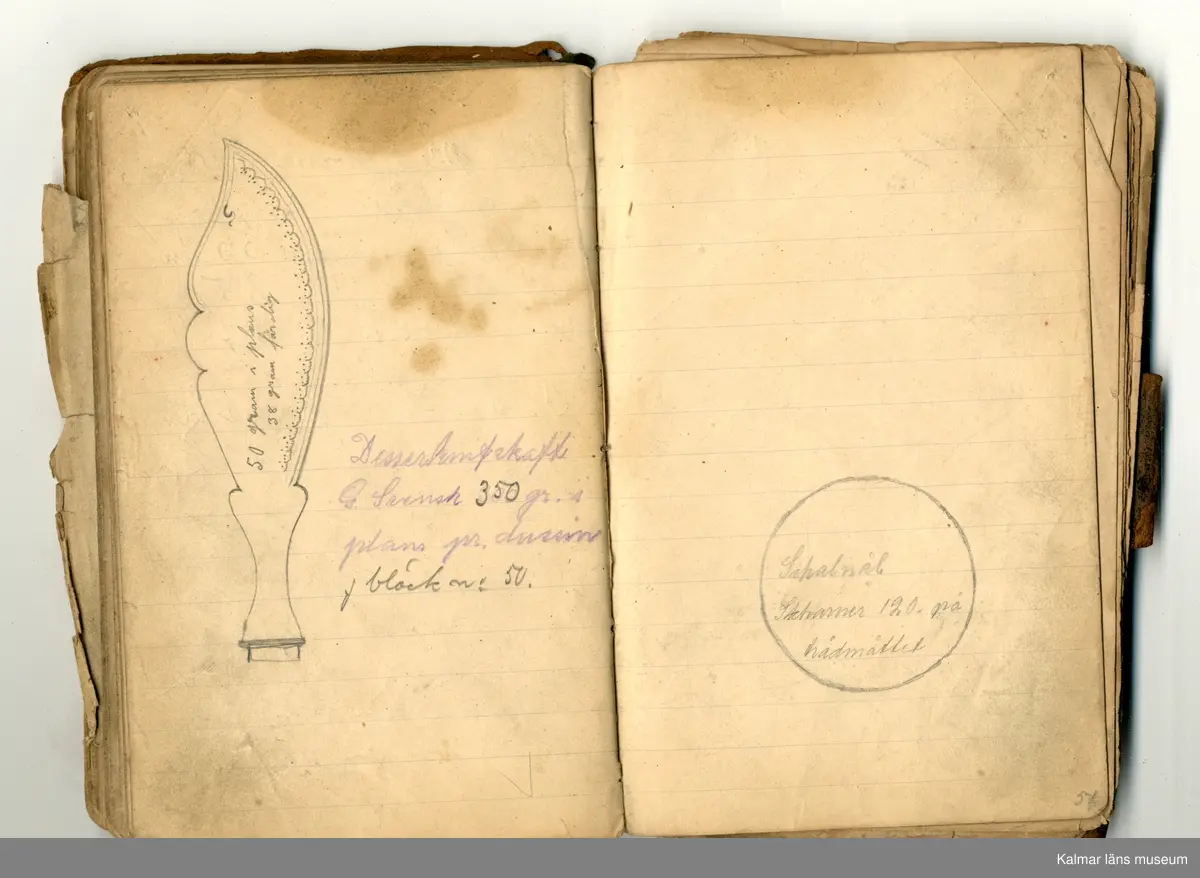 50 gram i plans
38 gram färdig
Dessertknifskaft
G. Svensk 350 gr. i
plans pr. dussin
bläck n: 50.
Schalnål
Scharner 120. på
trådmåttet
Kalmar läns museum